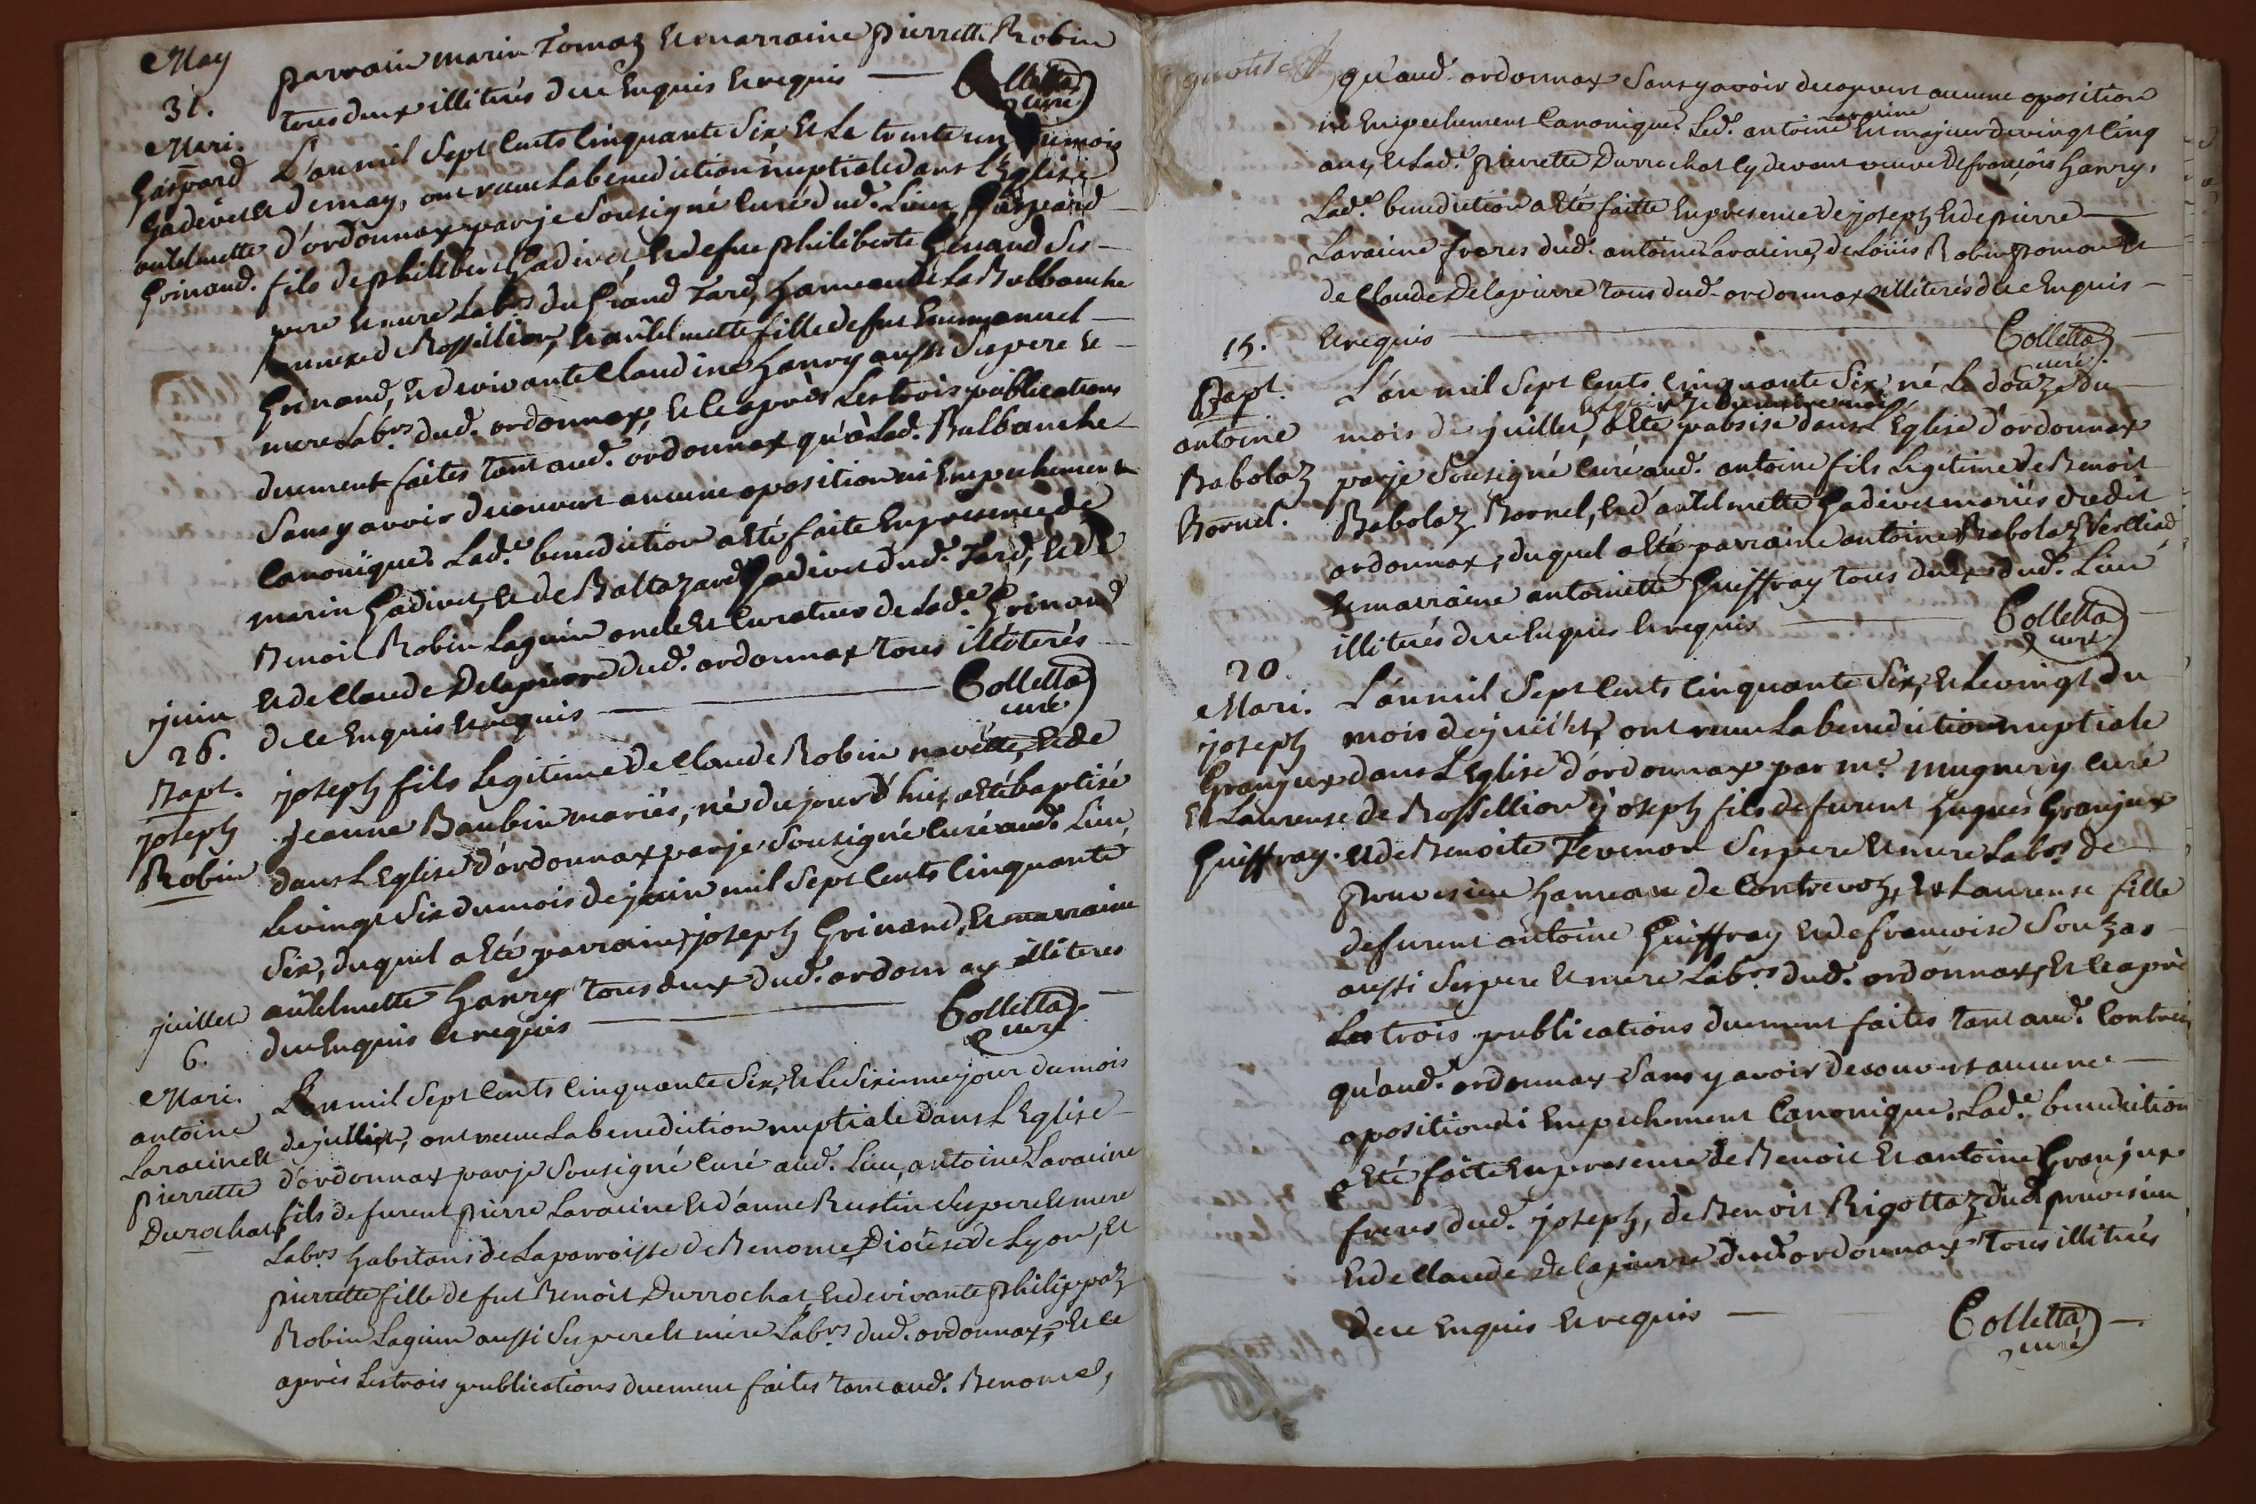 May
parrain marin Tomaz et marraine pierrette Robin
31.
tous deux illiterés de ce Enquis et requis
Colletta
curé
Mari.
Gaspard
Gadivet et
anthelmette
Grinand.
L'an mil Sept Cents Cinquante Six et Le trente un du mois
de may, ont reçu La benediction nuptiale dans L'Eglise
d'ordonnax par je Sousigné Curé dud. Lieu, Gaspard
fils de philibert Gadivet et de fue philiberte Genand Ses
pere et mere Labrs du Grand Tard, hameau de La Balbanche
annexe de Rossillion, et antelmette fille de fut Emmanuel
Grinand, et de vivante Claudine hanry aussi Ses pere et
mere Labrs dud. ordonnax, et Ce après Les trois publications
duement faites Tant aud. ordonnax qu'à Lad. Balbanche
Sans y avoir decouvert aucune oposition ni Empechement
Canonique. Lade benediction a Eté faite En presence de
marin Gadivet, et de Baltazard Gadivet dud. Tard, et de
Benoit Robin Laguin oncle et Curateur de Lade Grinand
et de Claude Delapierre dud. ordonnax Tous illiterés
de Ce Enquis et requis
Colletta
curé
juin
26.
Bapt.
joseph
Robin
joseph fils Legitime de Claude Robin navette, et de
jeanne Baubin mariés, né du jourd'hui, a Eté baptisé
dans L'Eglise d'ordonnax par je Sousigné Curé aud. Lieu
Le vingt Six du mois de juin mil Sept Cents Cinquante
Six, duquel a Eté parrain joseph Grinand, et marraine
antelmette hanry Tous deux dud. ordonnax illiteres
de ce Enquis et requis
Colletta
curé
juillet
6.
Mari.
antoine
Laracine et
pierrette
Durochat
L'an mil Sept Cents Cinquante Six, et Le Sixieme jour du mois
de juillet, ont reçu La benediction nuptiale dans L'Eglise
d'ordonnax par je Sousigné Curé aud. Lieu, antoine Laracine
fils de furent pierre Laracine et d'anne Rustin Ses pere et mere
Labrs habitans de La parroisse de Benonce Diocése de Lyon, et
pierrette fille de fut Benoit Durrochat, et de vivante philippaz
Robin Laguin aussi Ses pere et mere Labrs dud. ordonnax, et Ce
après Les trois publications duement faites Tant aud. Benonce,
qu'aud. ordonnax Sans y avoir decouvert aucune oposition
ni Empechement Canonique. Led. antoine Laracine Est majeur de vingt Cinq
ans, et Lade pierrette Durrochat Cy devant veuve de françois hanry,
Lade benediction a Eté faitte En presence de joseph et de pierre
Laracine freres dud. antoine Laracine, de Loüis Robin Pomon et
de Claude Delapierre Tous dud. ordonnax illiterés de ce Enquis
et requis
Colletta
curé
15.
Bapt.
antoine
Babolaz
Bornel.
L'an mil Sept Cents Cinquante Six, né Le douze du
mois de juillet, et Le quinze du meme mois a Eté babtisé dans L'Eglise d'ordonnax
par je Sousigné Curé aud. antoine fils Legitime de Benoit
Babolaz Bornel, et d'antelmette Gadivet mariés dudit
ordonnax, duquel a Eté parrain antoine Babolaz
et marraine antoinette Guiffray Tous deux dud. Lieu
illiterés de ce Enquis et requis
Colletta
curé
20.
Mari.
joseph
Granjux
Et Laurense
Guiffray.
L'an mil Sept Cents Cinquante Six, et Le vingt du
mois de juillet, ont reçu La benediction nuptiale
dans L'Eglise d'ordonnax par mr. mugnery Curé
de Rossellion joseph fils de furent hugues Granjux
et de Benoite Tevenon Ses pere et mere Labrs de
pruvesieu hameau de Contrevoz, et Laurense fille
de furent antoine Guiffray et de francoise Souzas
aussi Ses pere et mere Labrs dud. ordonnax, et Ce après
Les trois publications duement faites Tant aud. Contrev
qu'aud. ordonnax Sans y avoir decouvert aucune
oposition ni Empechement Canonique. Lade benediction
a Eté faite En presence de Benoit et antoine Granjux
freres dud. joseph, de Benoit Rigottaz dud. pruvesieu
et de Claude Delapierre dud. ordonnax Tous illiterés
de ce Enquis et requis
Colletta
curé